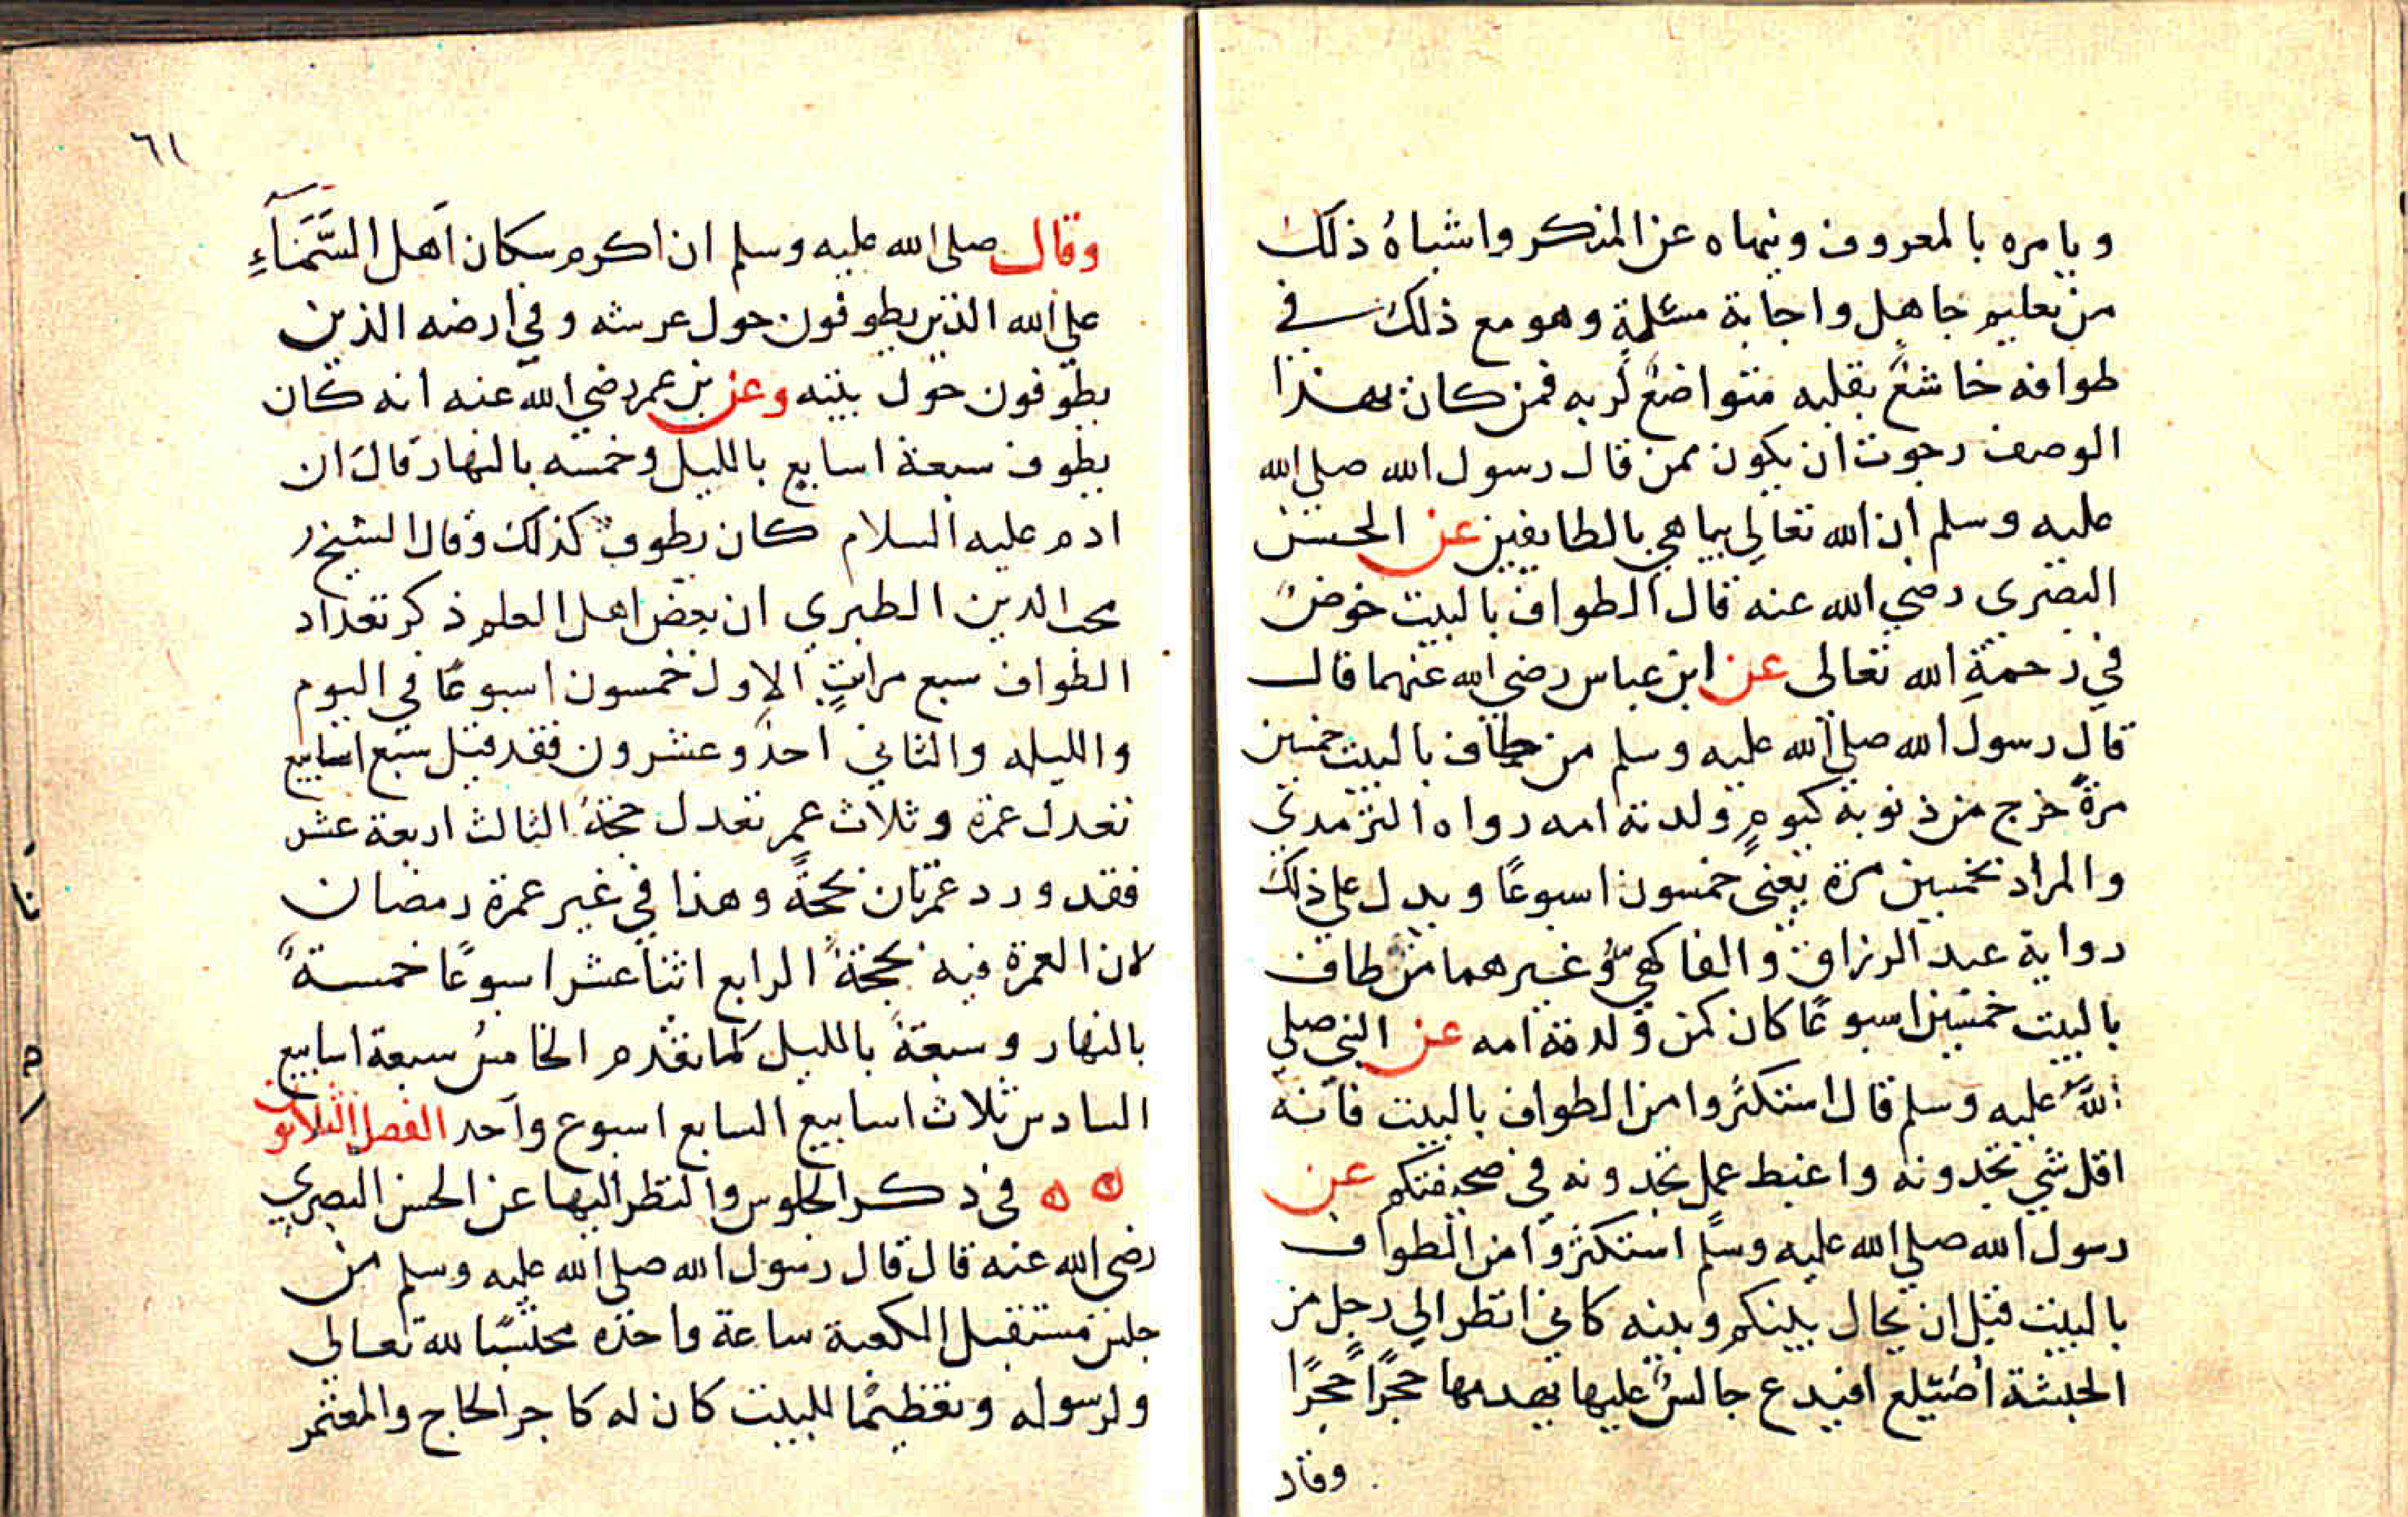 ويامره بالمعروف وينهاه عن المنكر واشباه ذلك
من تعليم جاهل واجابة مسئلة وهو مع ذلك في
طوافه خاشع بقلبه متواضع لربه فمن كان بهذا
الوصف رجوت ان يكون ممن قال رسول الله صلي الله
عليه وسلم ان الله تعالي يباهي بالطايفين عن الحسن
البصري رضي الله عنه قال الطواف بالبيت خوض
في رحمة الله تعالى عن ابن عباس رضي الله عنهما قال
قال رسول الله صلي الله عليه وسلم من طاف بالبيت خمسين
مرة خرج من ذنوبه كيوم ولدته امه رواه الترمدي
والمراد بخمسين مرة يعني خمسون اسبوعًا ويدل علي ذلك
رواية عبد الرزاق والفاكهي وغيرهما من طاف
بالبيت خمسين اسبوعًا كان كمن ولدته امه عن النبي صلي
الله عليه وسلم قال استكثروا من الطواف بالبيت فانه
اقل شي تجدونه واغبط عمل تجدونه في صحيفتكم عن
رسول الله صلي الله عليه وسلم استكثروا من الطواف
بالبيت قبل ان يحال بينكم وبينه كاني انظر الي رجل من
الحبشة اصيلع افيدع جالس عليها يهدمها حجرًا حجرًا
وقال
٦١
وقال صلي الله عليه وسلم ان اكرم سكان اهل السَّمَآءِ
علي الله الذين يطوفون حول عرشه وفي ارضه الذين
يطوفون حول بيته وعن بن عمر رضي الله عنه انه كان
يطوف سبعة اسابع بالليل وخمسه بالنهار قال ان
ادم عليه السلام كان يطوف كذلك وقال الشيخ
محب الدين الطبري ان بعض اهل العلم ذكر تعداد
الطواف سبع مراتب الاول خمسون اسبوعًا في اليوم
والليله والثاني احد وعشرون فقد قيل سبع اسابيع
تعدل عمرة وثلاث عمر تعدل حجة الثالث اربعة عشر
فقد ورد عمرتان بحجة وهذا في غير عمرة رمضان
لان العمرة فيه بحجة الرابع اثنا عشر اسبوعًا خمسة
بالنهار وسبعة بالليل كما تقدم الخامس سبعة اسابيع
السادس ثلاث اسابيع السابع اسبوع واحد الفصل الثلاثون
في ذكر الجلوس والنظر اليها عن الحسن البصري
رضي الله عنه قال قال رسول الله صلي الله عليه وسلم من
جلس مستقبل الكعبة ساعة واحده محتسبًا لله تعالي
ولرسوله وتعظيمًا للبيت كان له كاجر الحاج والمعتمر